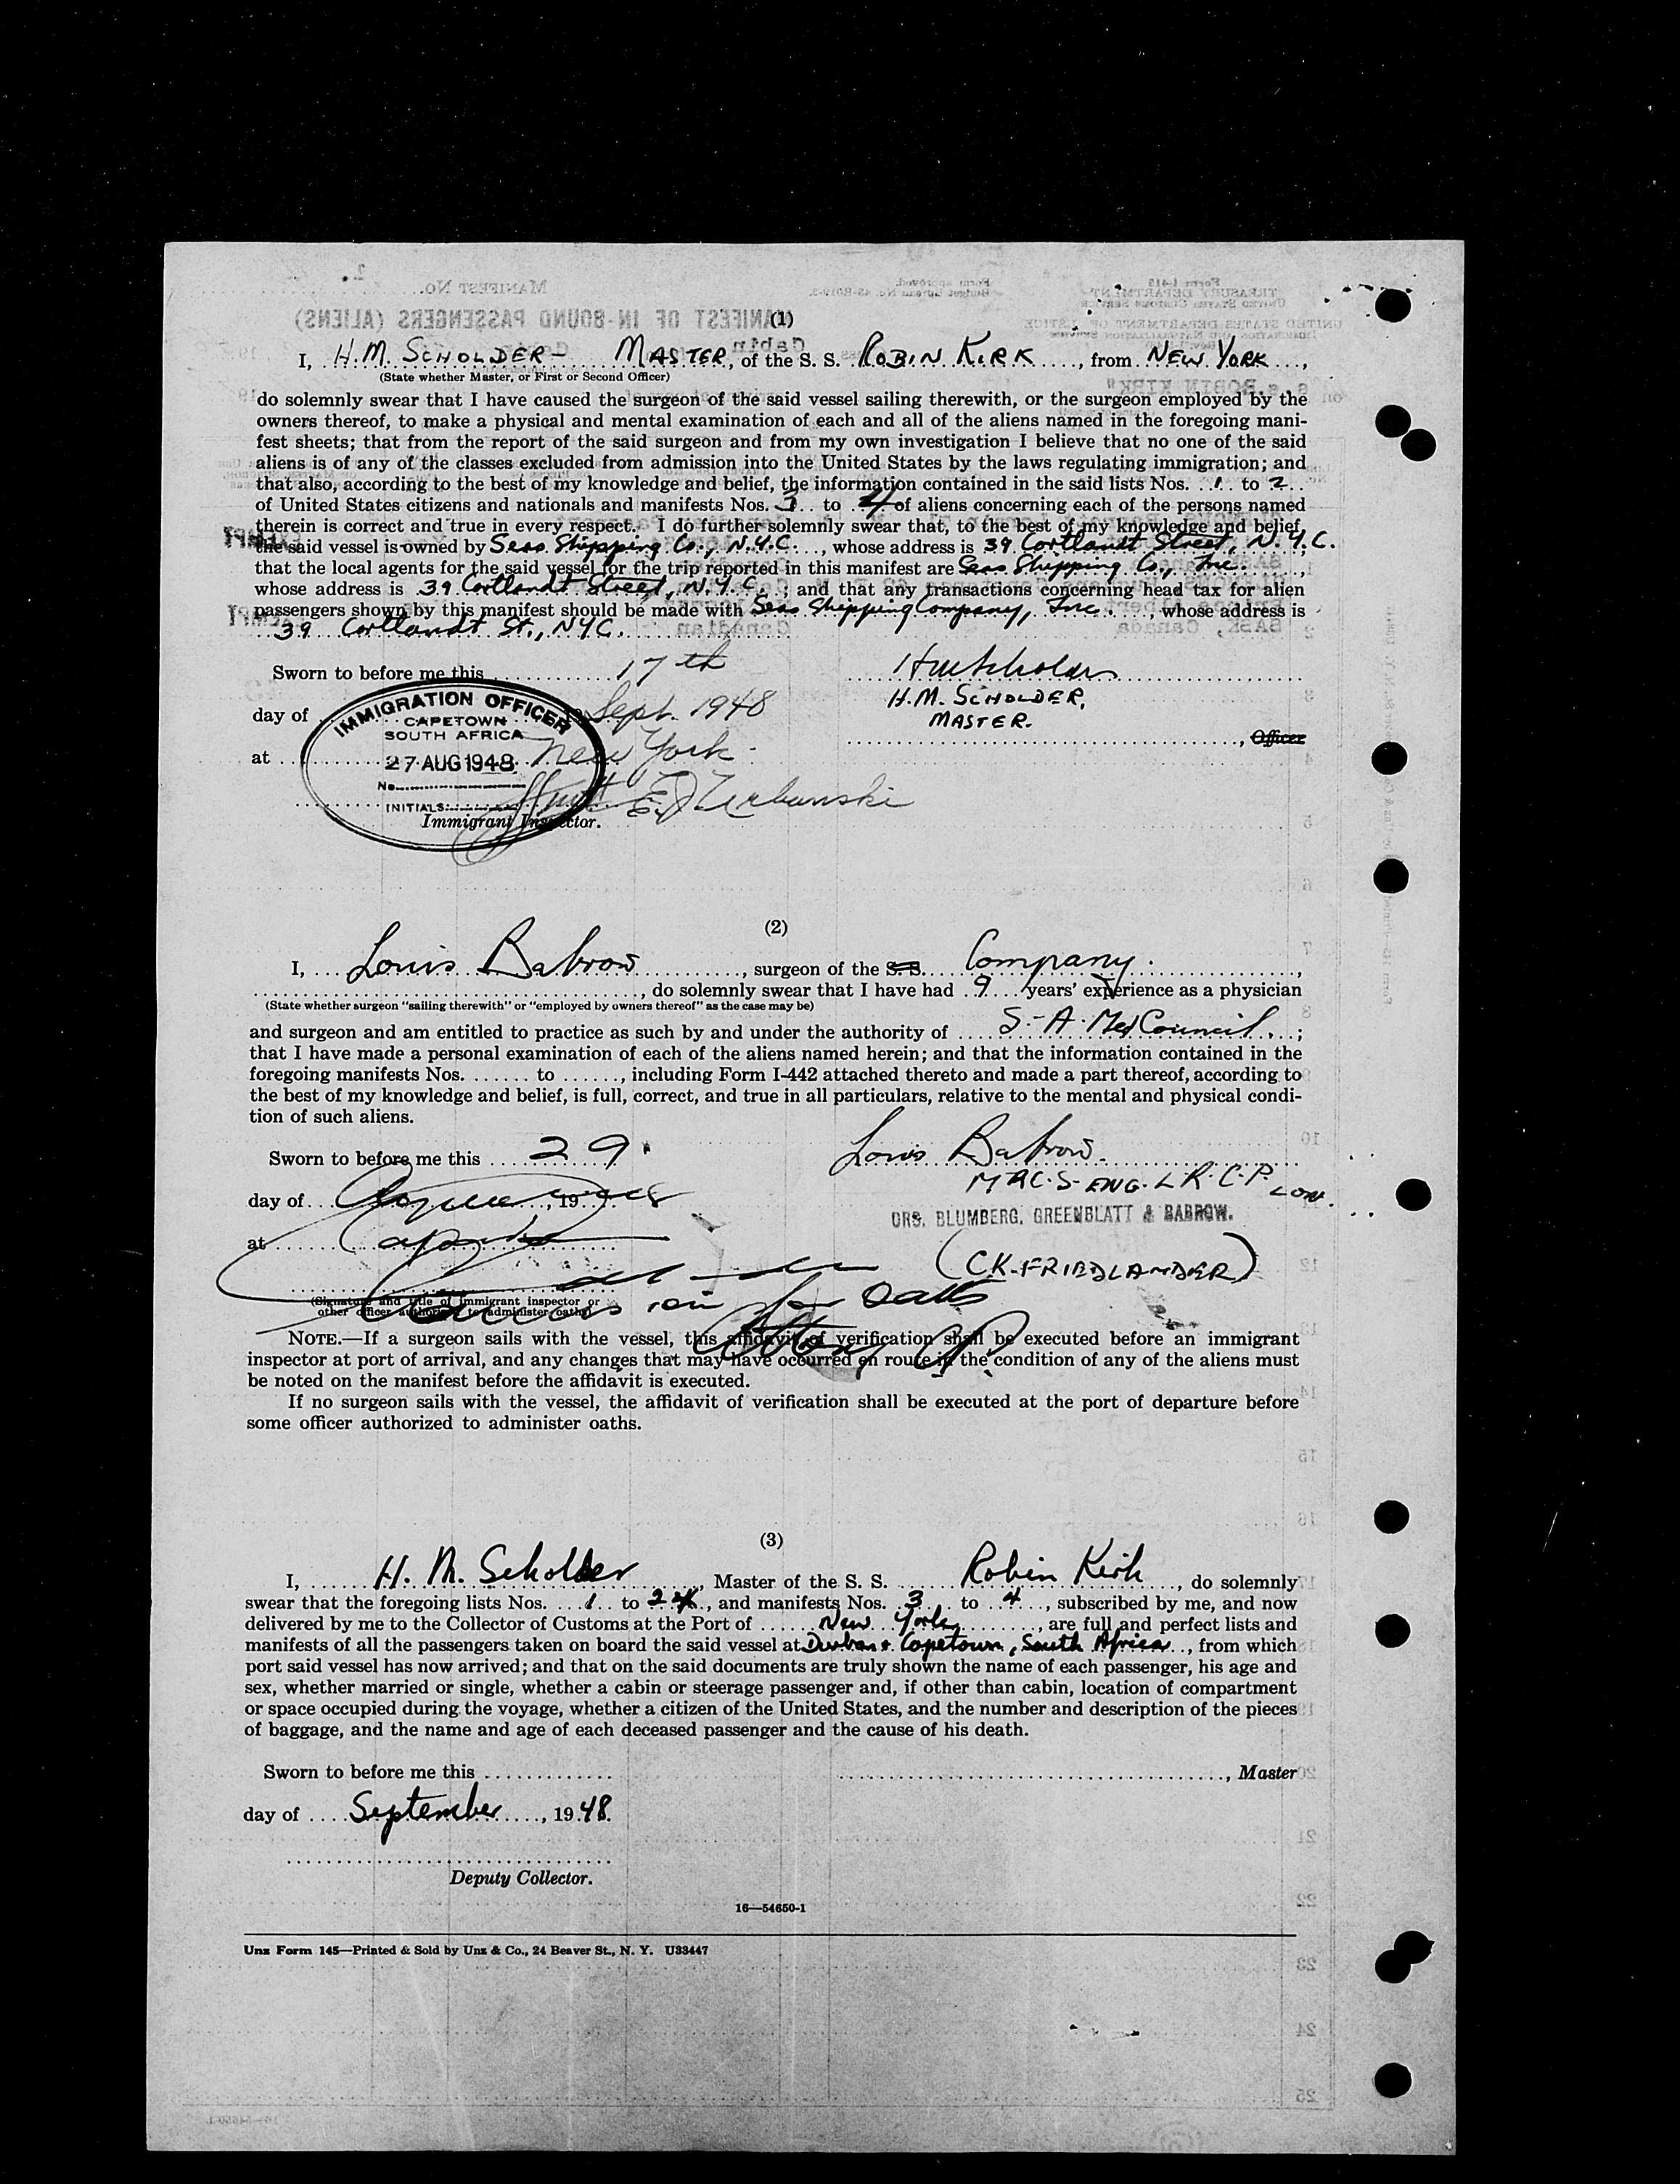 (1)
I, H.M. SCHOLDER- MASTER, of the S. S. ROBIN KIRK, from NEW YORK,
(State whether Master, or First or Second Officer)
do solemnly swear that I have caused the surgeon of the said vessel sailing therewith, or the surgeon employed by the
owners thereof, to make a physical and mental examination of each and all of the aliens named in the foregoing mani-
fest sheets; that from the report of the said surgeon and from my own investigation I believe that no one of the said
aliens is of any of the classes excluded from admission into the United States by the laws regulating immigration; and
that also, according to the best of my knowledge and belief, the information contained in the said lists Nos. 1 to 2
of United States citizens and nationals and manifests Nos. 3 to 4 of aliens concerning each of the persons named
therein is correct and true in every respect. I do further solemnly swear that, to the best of my knowledge and belief,
the said vessel is owned by Seas Shipping Co., N.Y.C., whose address is 39 Cortlandt Street, N.Y.C.
that the local agents for the said vessel for the trip reported in this manifest are Seas Shipping Co., Inc.,
whose address is 39 Cortlandt Street, N.Y.C.; and that any transactions concerning head tax for alien
passengers shown by this manifest should be made with Seas Shipping Company, Inc., whose address is
39 Cortlandt St., NYC.
Sworn to before me this 17th
H.M. SCHOLDER,
MASTER.
day of Sept. 1948
, Officer
at New York
IMMIGRATION OFFICER
CAPETOWN
SOUTH AFRICA
27 AUG 1948
No.
INITIALS:
E J Urbanski
Immigrant Inspector.
(2)
I, Louis Babrow, surgeon of the S. S. Company.,
, do solemnly swear that I have had 9 years' experience as a physician
(State whether surgeon "sailing therewith" or "employed by owners thereof" as the case may be)
and surgeon and am entitled to practice as such by and under the authority of S-A-Med Council.;
that I have made a personal examination of each of the aliens named herein; and that the information contained in the
foregoing manifests Nos. ...... to ......, including Form I-442 attached thereto and made a part thereof, according to
the best of my knowledge and belief, is full, correct, and true in all particulars, relative to the mental and physical condi-
tion of such aliens.
Sworn to before me this 29.
Louis Babrow.
M R.C.S- ENG. L R.C.P. LON.
day of , 19
DRS. BLUMBERG, GREENBLATT & BABROW.
at
(C.K. FRIEDLANDER)
for Oaths
(Signature and title of immigrant inspector or
other officer authorized to administer oaths)
NOTE.—If a surgeon sails with the vessel, this affidavit of verification shall be executed before an immigrant
inspector at port of arrival, and any changes that may have occurred en route in the condition of any of the aliens must
be noted on the manifest before the affidavit is executed.
If no surgeon sails with the vessel, the affidavit of verification shall be executed at the port of departure before
some officer authorized to administer oaths.
(3)
I, H. M. Scholder, Master of the S. S. Robin Kirk, do solemnly
swear that the foregoing lists Nos. 1 to 2, and manifests Nos. 3 to 4, subscribed by me, and now
delivered by me to the Collector of Customs at the Port of New York, are full and perfect lists and
manifests of all the passengers taken on board the said vessel at Durban & Capetown, South Africa, from which
port said vessel has now arrived; and that on the said documents are truly shown the name of each passenger, his age and
sex, whether married or single, whether a cabin or steerage passenger and, if other than cabin, location of compartment
or space occupied during the voyage, whether a citizen of the United States, and the number and description of the pieces
of baggage, and the name and age of each deceased passenger and the cause of his death.
Sworn to before me this
, Master
day of September, 1948.
Deputy Collector.
16—54650-1
Unz Form 145—Printed & Sold by Unz & Co., 24 Beaver St., N. Y. U33447